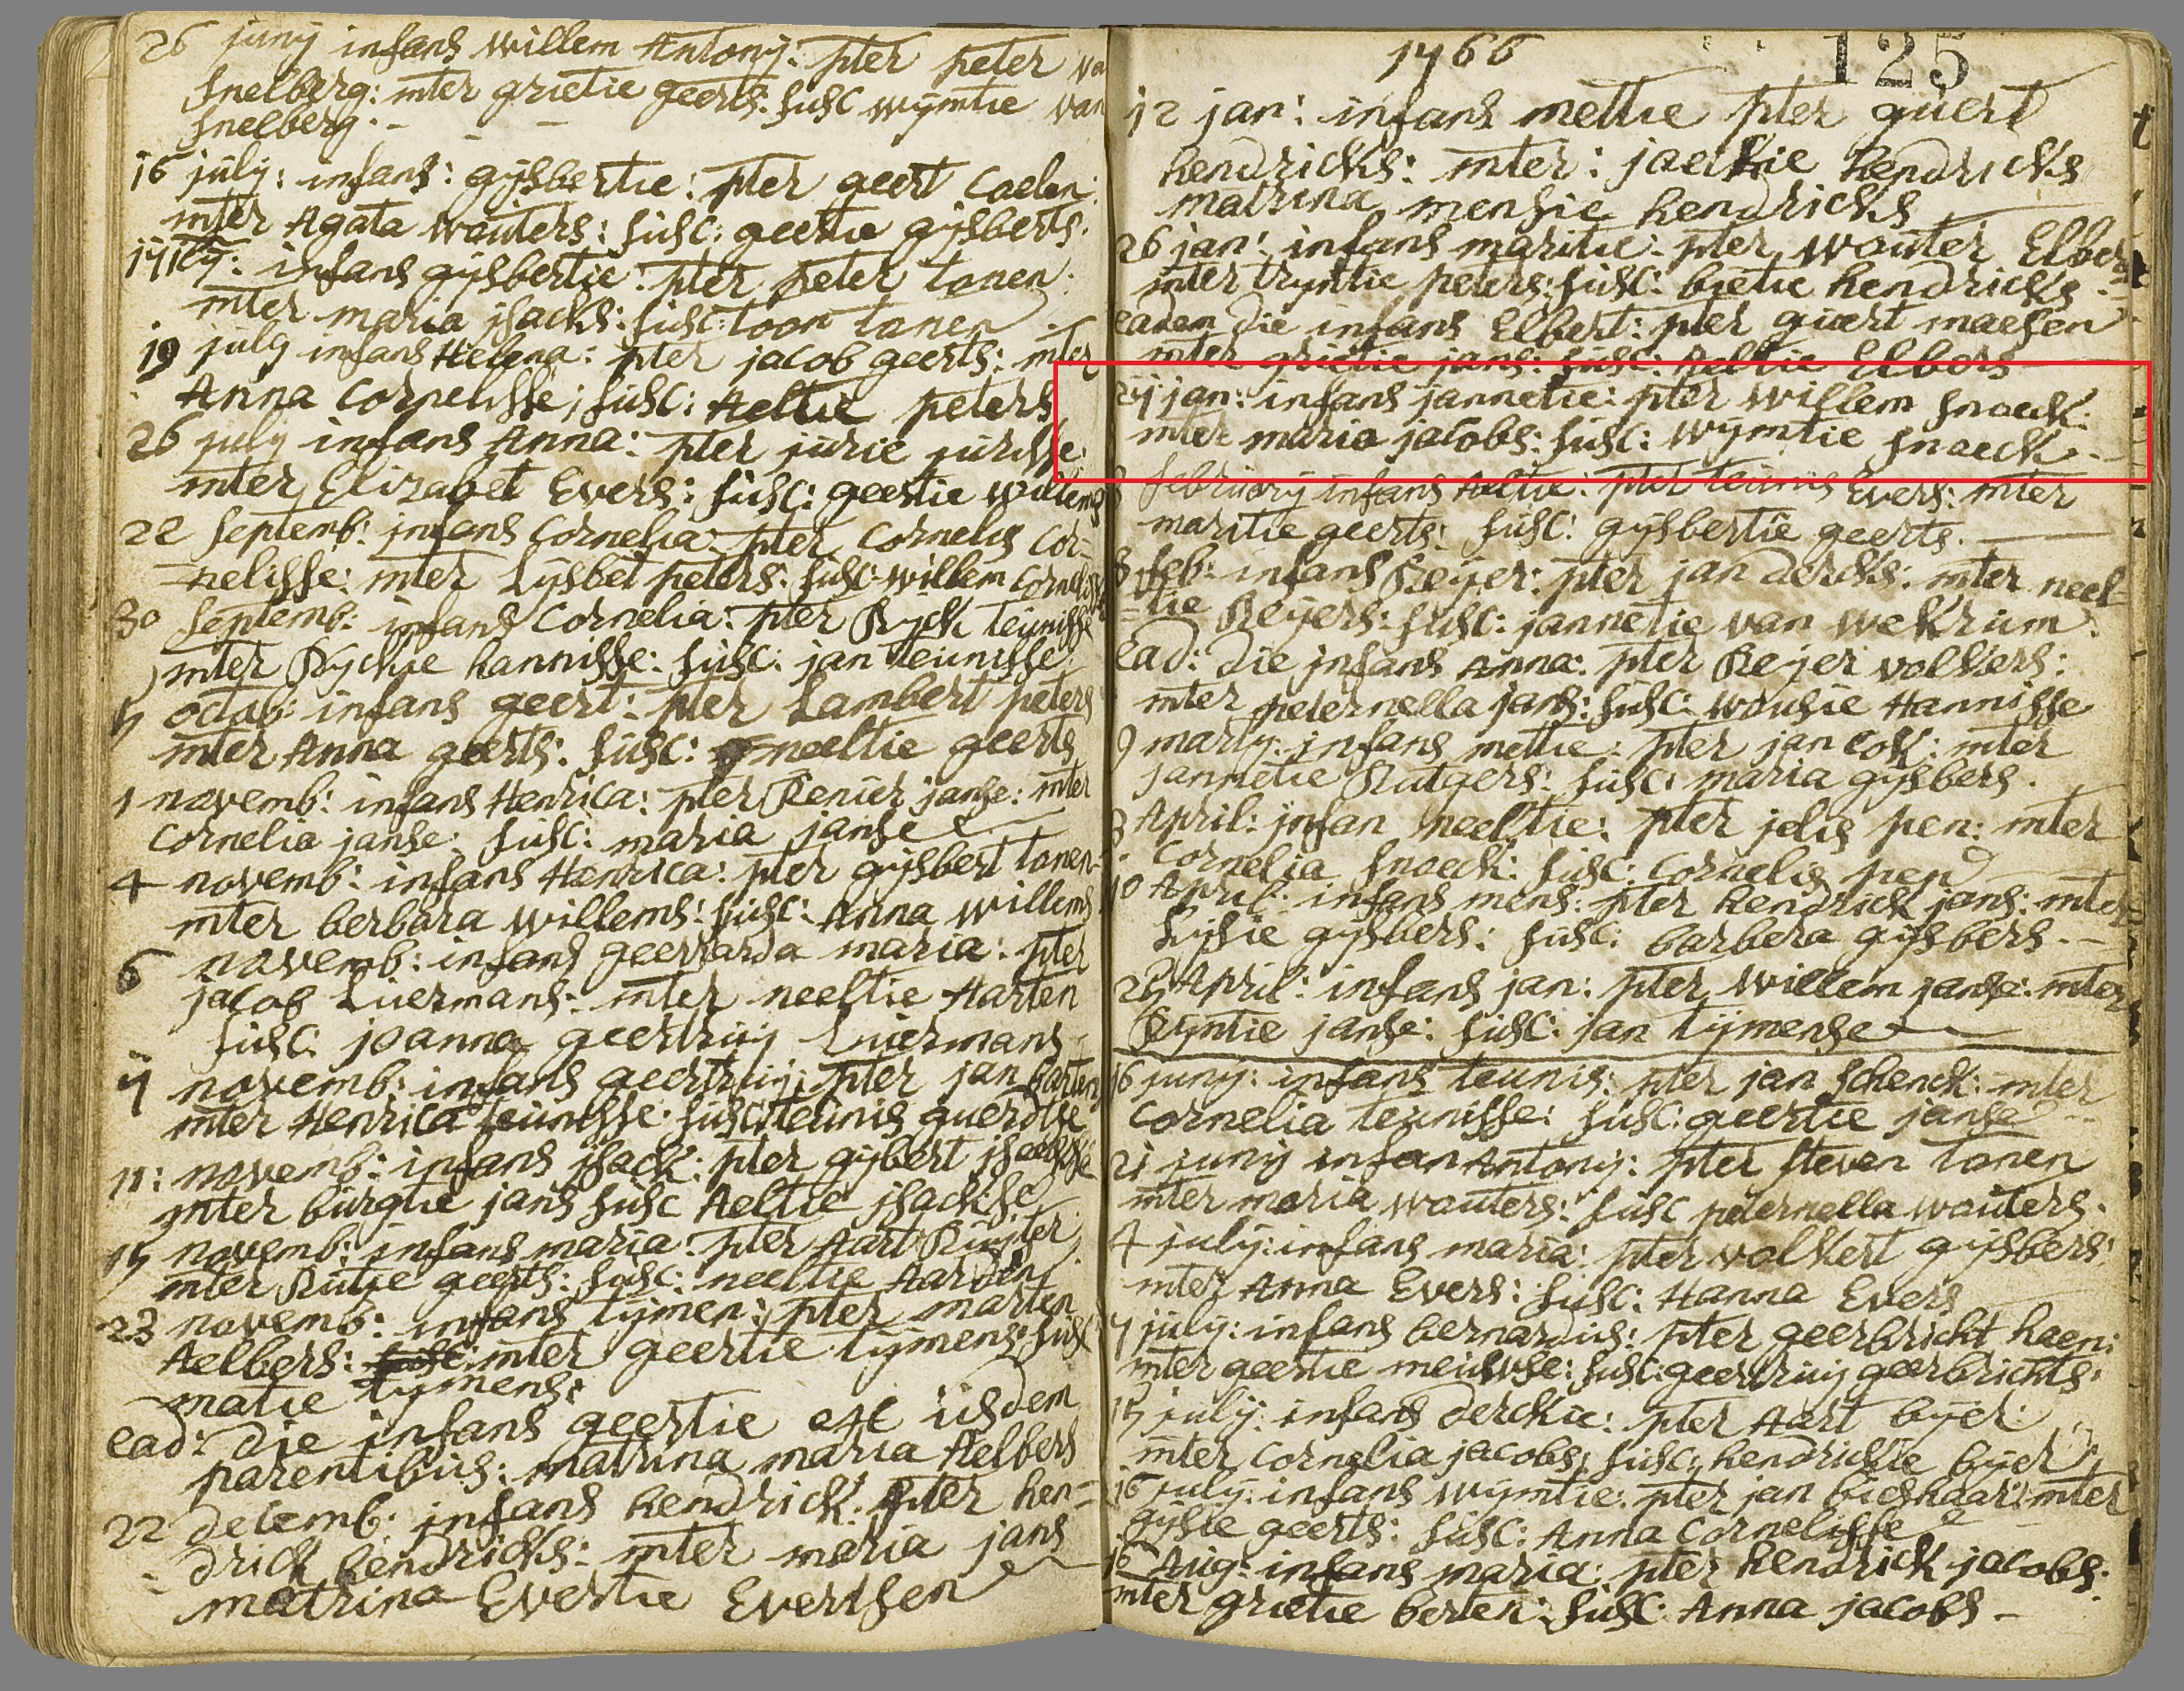 26 junij infans willem Antonij: pter peter va
snelberg: mter grietie geerts: susc wijmtie van
snelberg.
16 julij: infans: gijsbertie: pter geert Caelen:
mter Agata wouters: susc: geertie gijsberts.
infans gijsbertie: pter peter tonen.
mter maria jsacks: susc: toon tonen
19 july infans Helena: pter jacob geerts: mter
Anna Cornelisse; susc: Aeltie peters
26 july infans Anna: pter jurie jurisse:
mter Elizabet Evers: susc: geertie willems
22 Septemb: infans Cornelia: pter Cornelis Cor=
=nelisse: mter Lijsbet peters: susc: willem Cornelisse
30 Septemb: infans Cornelia: pter Ryck teunisse
mter Ryckje hannisse: susc: jan teunisse.
octob: infans geert: pter Lambert peters
mter Anna geerts: susc: neeltie geerts
1 novemb: infans Henrica: pter Renier janse: mter
Cornelia janse: susc: maria janse
4 novemb: infans Henrica: pter gijsbert tonen=
mter berbara willems: susc: Anna willems
6 novemb: infans geerrarda maria: pter
jacob Luermans: mter neeltie Harten
susc: joanna geertruij Luermans
ÿ novemb: infans geertruij: pter jan barten
mter Henrica teunisse: susc: teunis guerdtse
11: novemb: infans jsack: pter gijbert jsackse
mter burgtie jans susc Aeltie jsackse
1ÿ novemb: infans maria: pter Aart Ruijter
mter Rutje geerts: susc: neeltie Aarden
23 novemb: infans tijmen: pter marten
Aelbers: mter geertie tijmens: susc
matie tijmens:
ead: die infans geertie ex iisdem
parentibus: matrina maria Aelbers
22 decemb: infans hendrick: pter hen=
=drick hendricks: mter maria jans
matrina Evertie Evertsen
1766
125
12 jan: infans mettie pter guert
hendricks: mter: jackie hendricks
matrina mensie hendricks
26 jan: infans maritie: pter wouter Elbers
mter trijntie peters: susc: bietie hendricks
eadem die infans Elbert: pter guert maesen
mter grietie jans: susc: Aeltie Elbers
2ÿ jan: infans jannetie: pter willem snoeck:
mter maria jacobs: susc: wijmtie snoeck.
februarij infans Aeltie: pter teunis Evers: mter
maritie geerts: susc: gijsbertie geerts.
8 feb: infans Reijer: pter jan dercks: mter neel
=tie Reijers: susc: jannetie van wekrium.
ead: die infans Anna: pter Reijer volkers:
mter peternella jans: susc: wousie Hannisse
9 martij: infans mettie: pter jan Cok: mter
jannetie Rutgers: susc: maria gijsbers.
3 April: infan neeltie: pter jelis pen: mter
Cornelia snoeck: susc: Cornelis pen
10 April: infans mens: pter hendrick jans: mter
Lijsie gijsbers: susc: barbera gijsbers.
2ÿ April: infans jan: pter willem janse: mter
Rijntie janse: susc: jan tijmense
16 junij: infans teunis: pter jan schenck: mter
Cornelia teunisse: susc: geertie janse
21 junij infan Antonij: pter steven tonen
mter maria wouters: susc peternella wouters.
4 julij: infans maria: pter volkert gijsbers:
mter Anna Evers: susc: Hanna Evers
ÿ julij: infans bernardus: pter geerbricht haen:
mter geertie meuwse: susc: geertruij geerbrichts.
1ÿ julij: infans derckie: pter Aart bijer:
mter Cornelia jacobs: susc: hendrickie bijer
16 julij: infans wijmtie: pter jan bieshaar: mter
gijsie geerts: susc: Anna Cornelisse
16 Aug: infans maria: pter hendrick jacobs.
mter grietie berten: susc: Anna jacobs